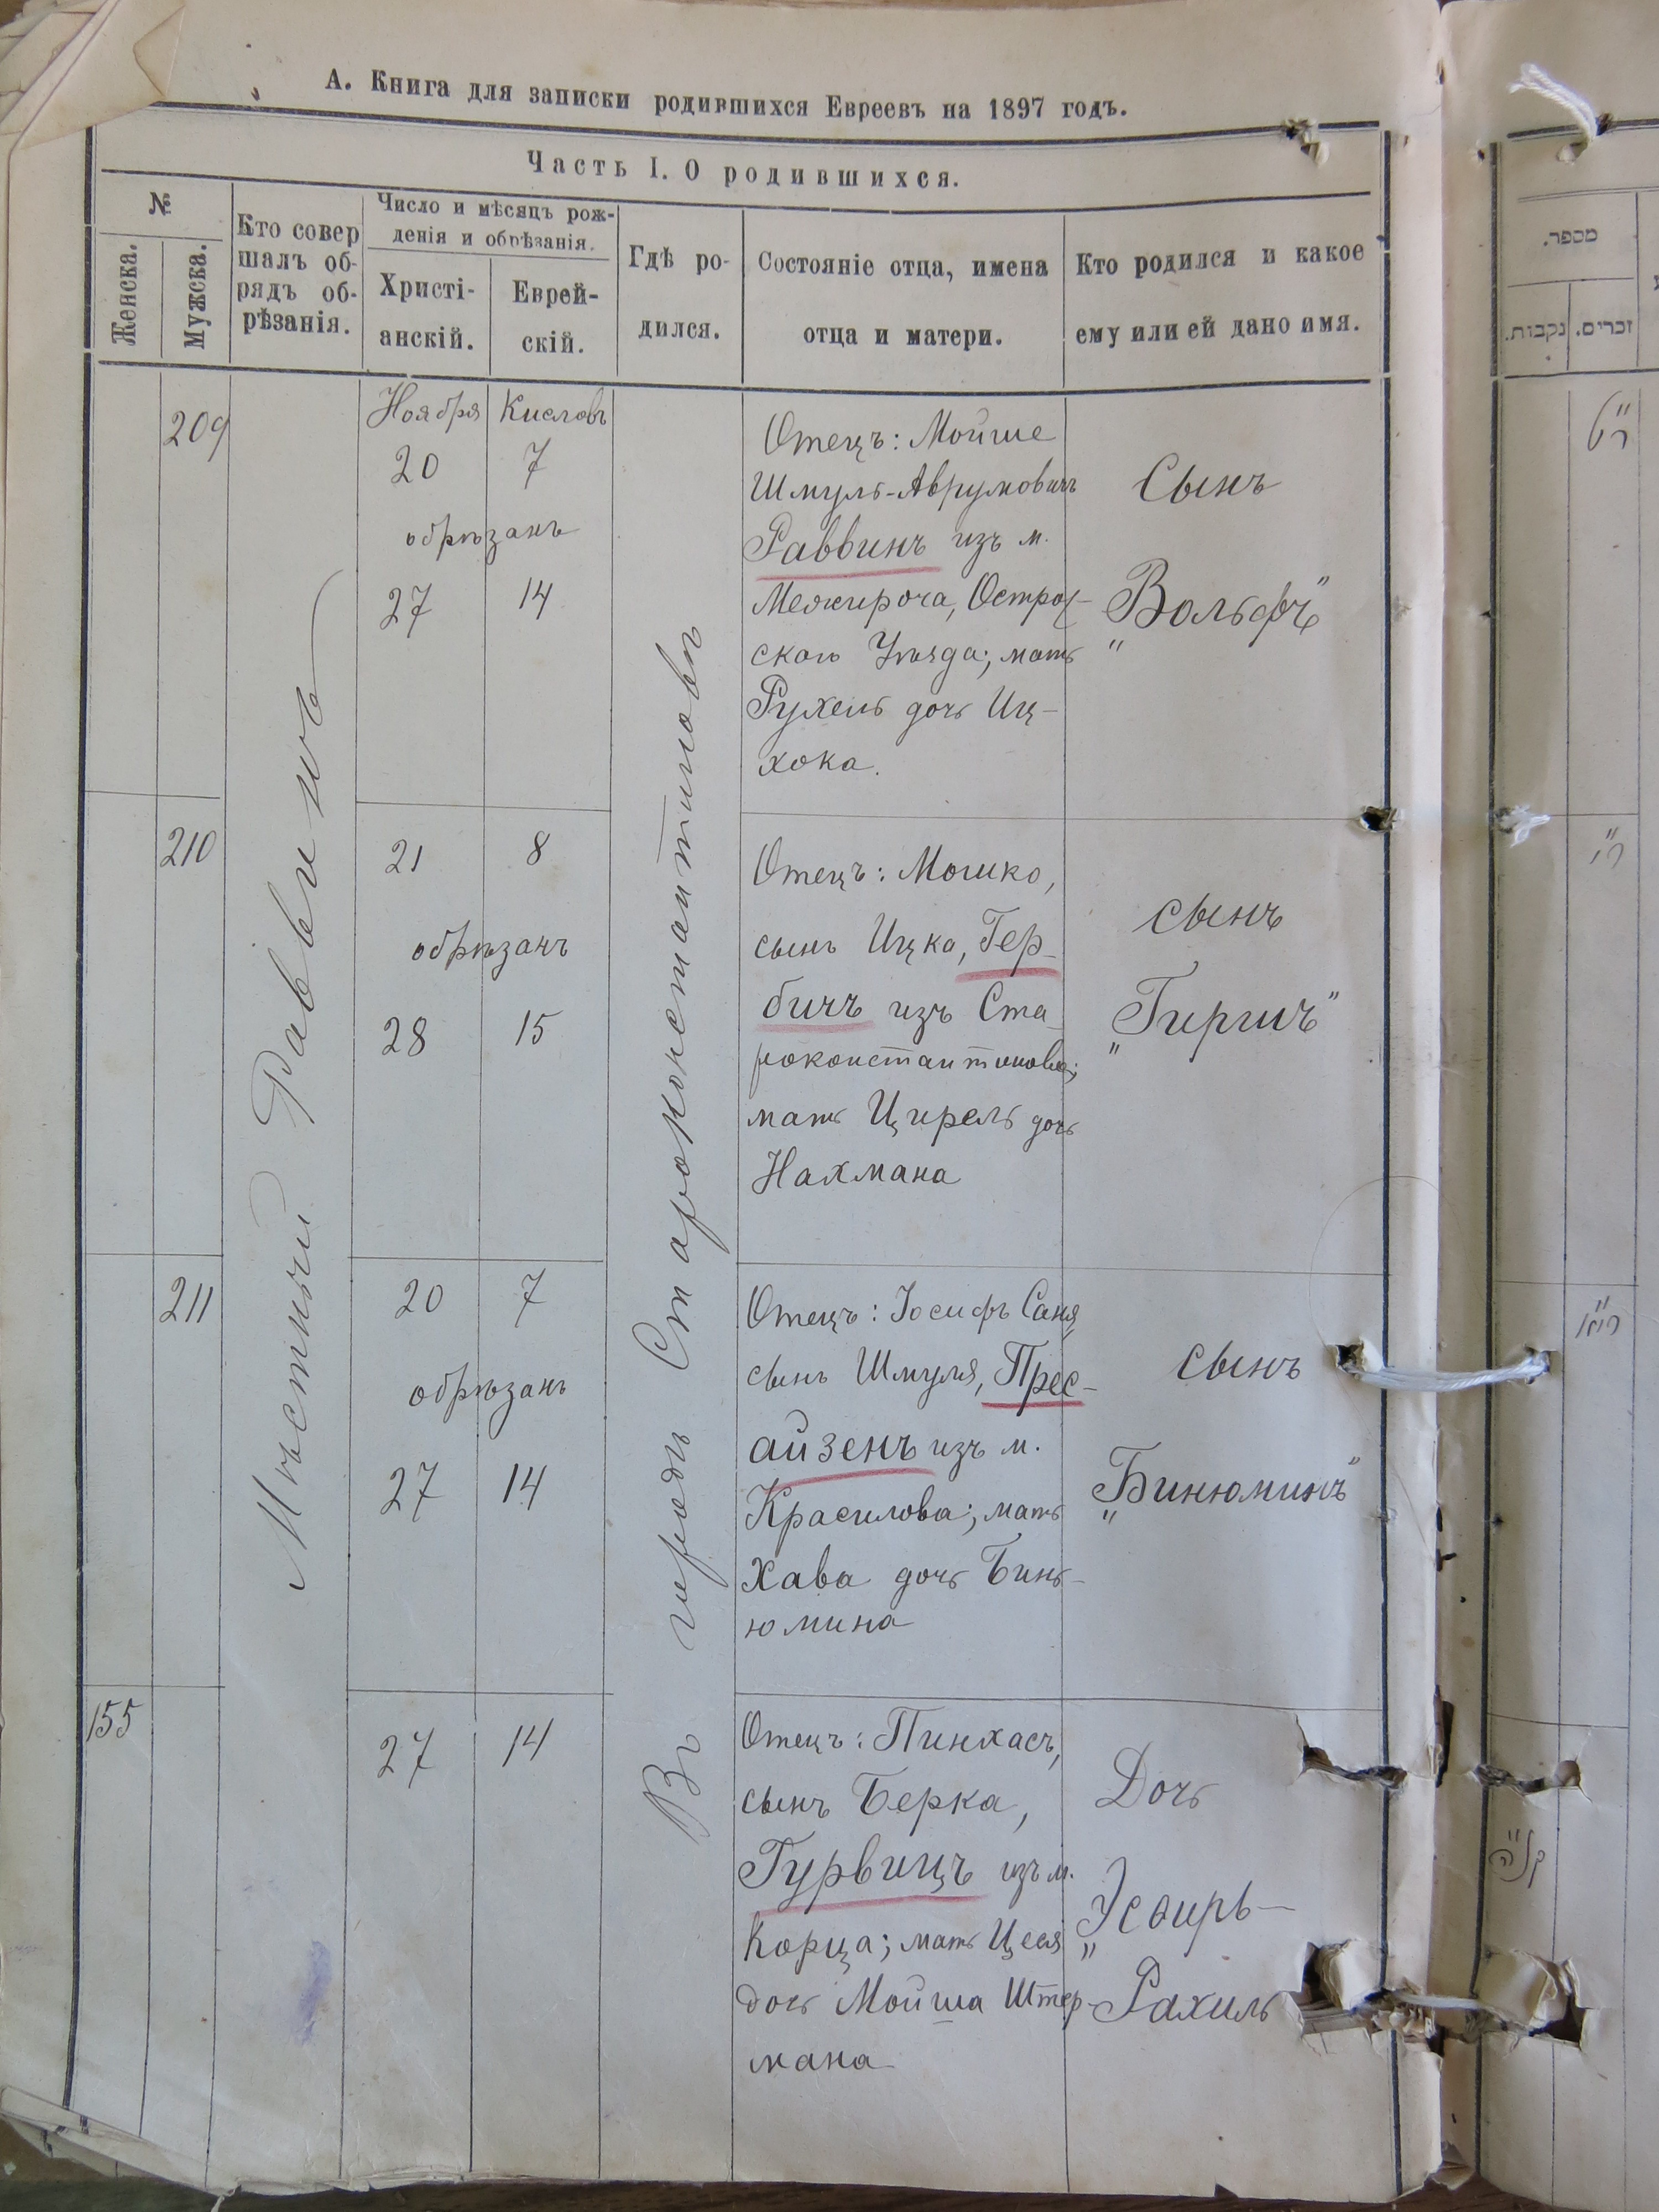 А. Книга для записки родившихся Евреевъ на 1897 годъ.
Часть I. О родившихся.
№
Женска.
Мужска.
Кто совер
шалъ об-
рядъ об-
рѣзанія.
Число и мѣсяцъ рож-
денія и обрѣзанія.
Христі-
анскій.
Еврей-
скій.
Гдѣ ро-
дился.
Состояніе отца, имена
отца и матери.
Кто родился и какое
ему или ей дано имя.
מספר.
נקבות.
זכרים.
Мѣстный Раввинъ
Въ городѣ Староконстантиновѣ
209
Ноября Кислевъ
20 7
обрѣзанъ
27 14
Отецъ: Мойше
Шмуль-Аврумовичъ
Раввинъ изъ м.
Межирича, Острог-
скаго Уѣзда; мать
Рухель дочь Иц-
хока.
Сынъ
„Вольфъ"
ר"ט
210
21 8
обрѣзанъ
28 15
Отецъ: Мошко,
сынъ Ицко, Гер-
бичъ изъ Ста-
роконстантинова;
мать Цирель дочь
Нахмана
сынъ
„Гиршъ"
ר"י
211
20 7
обрѣзанъ
27 14
Отецъ: Іосифъ Саня,
сынъ Шмуля, Прес-
айзенъ изъ м.
Красилова; мать
Хава дочь Бинь-
юмина
сынъ
„Бинюминъ"
רי"א
155
27 14
Отецъ: Пинхасъ,
сынъ Берка,
Гурвицъ изъ м.
Корца; мать Цеся
дочь Мойша Штер-
мана
Дочь
„Эсѳирь-
Рахиль
קנ"ה